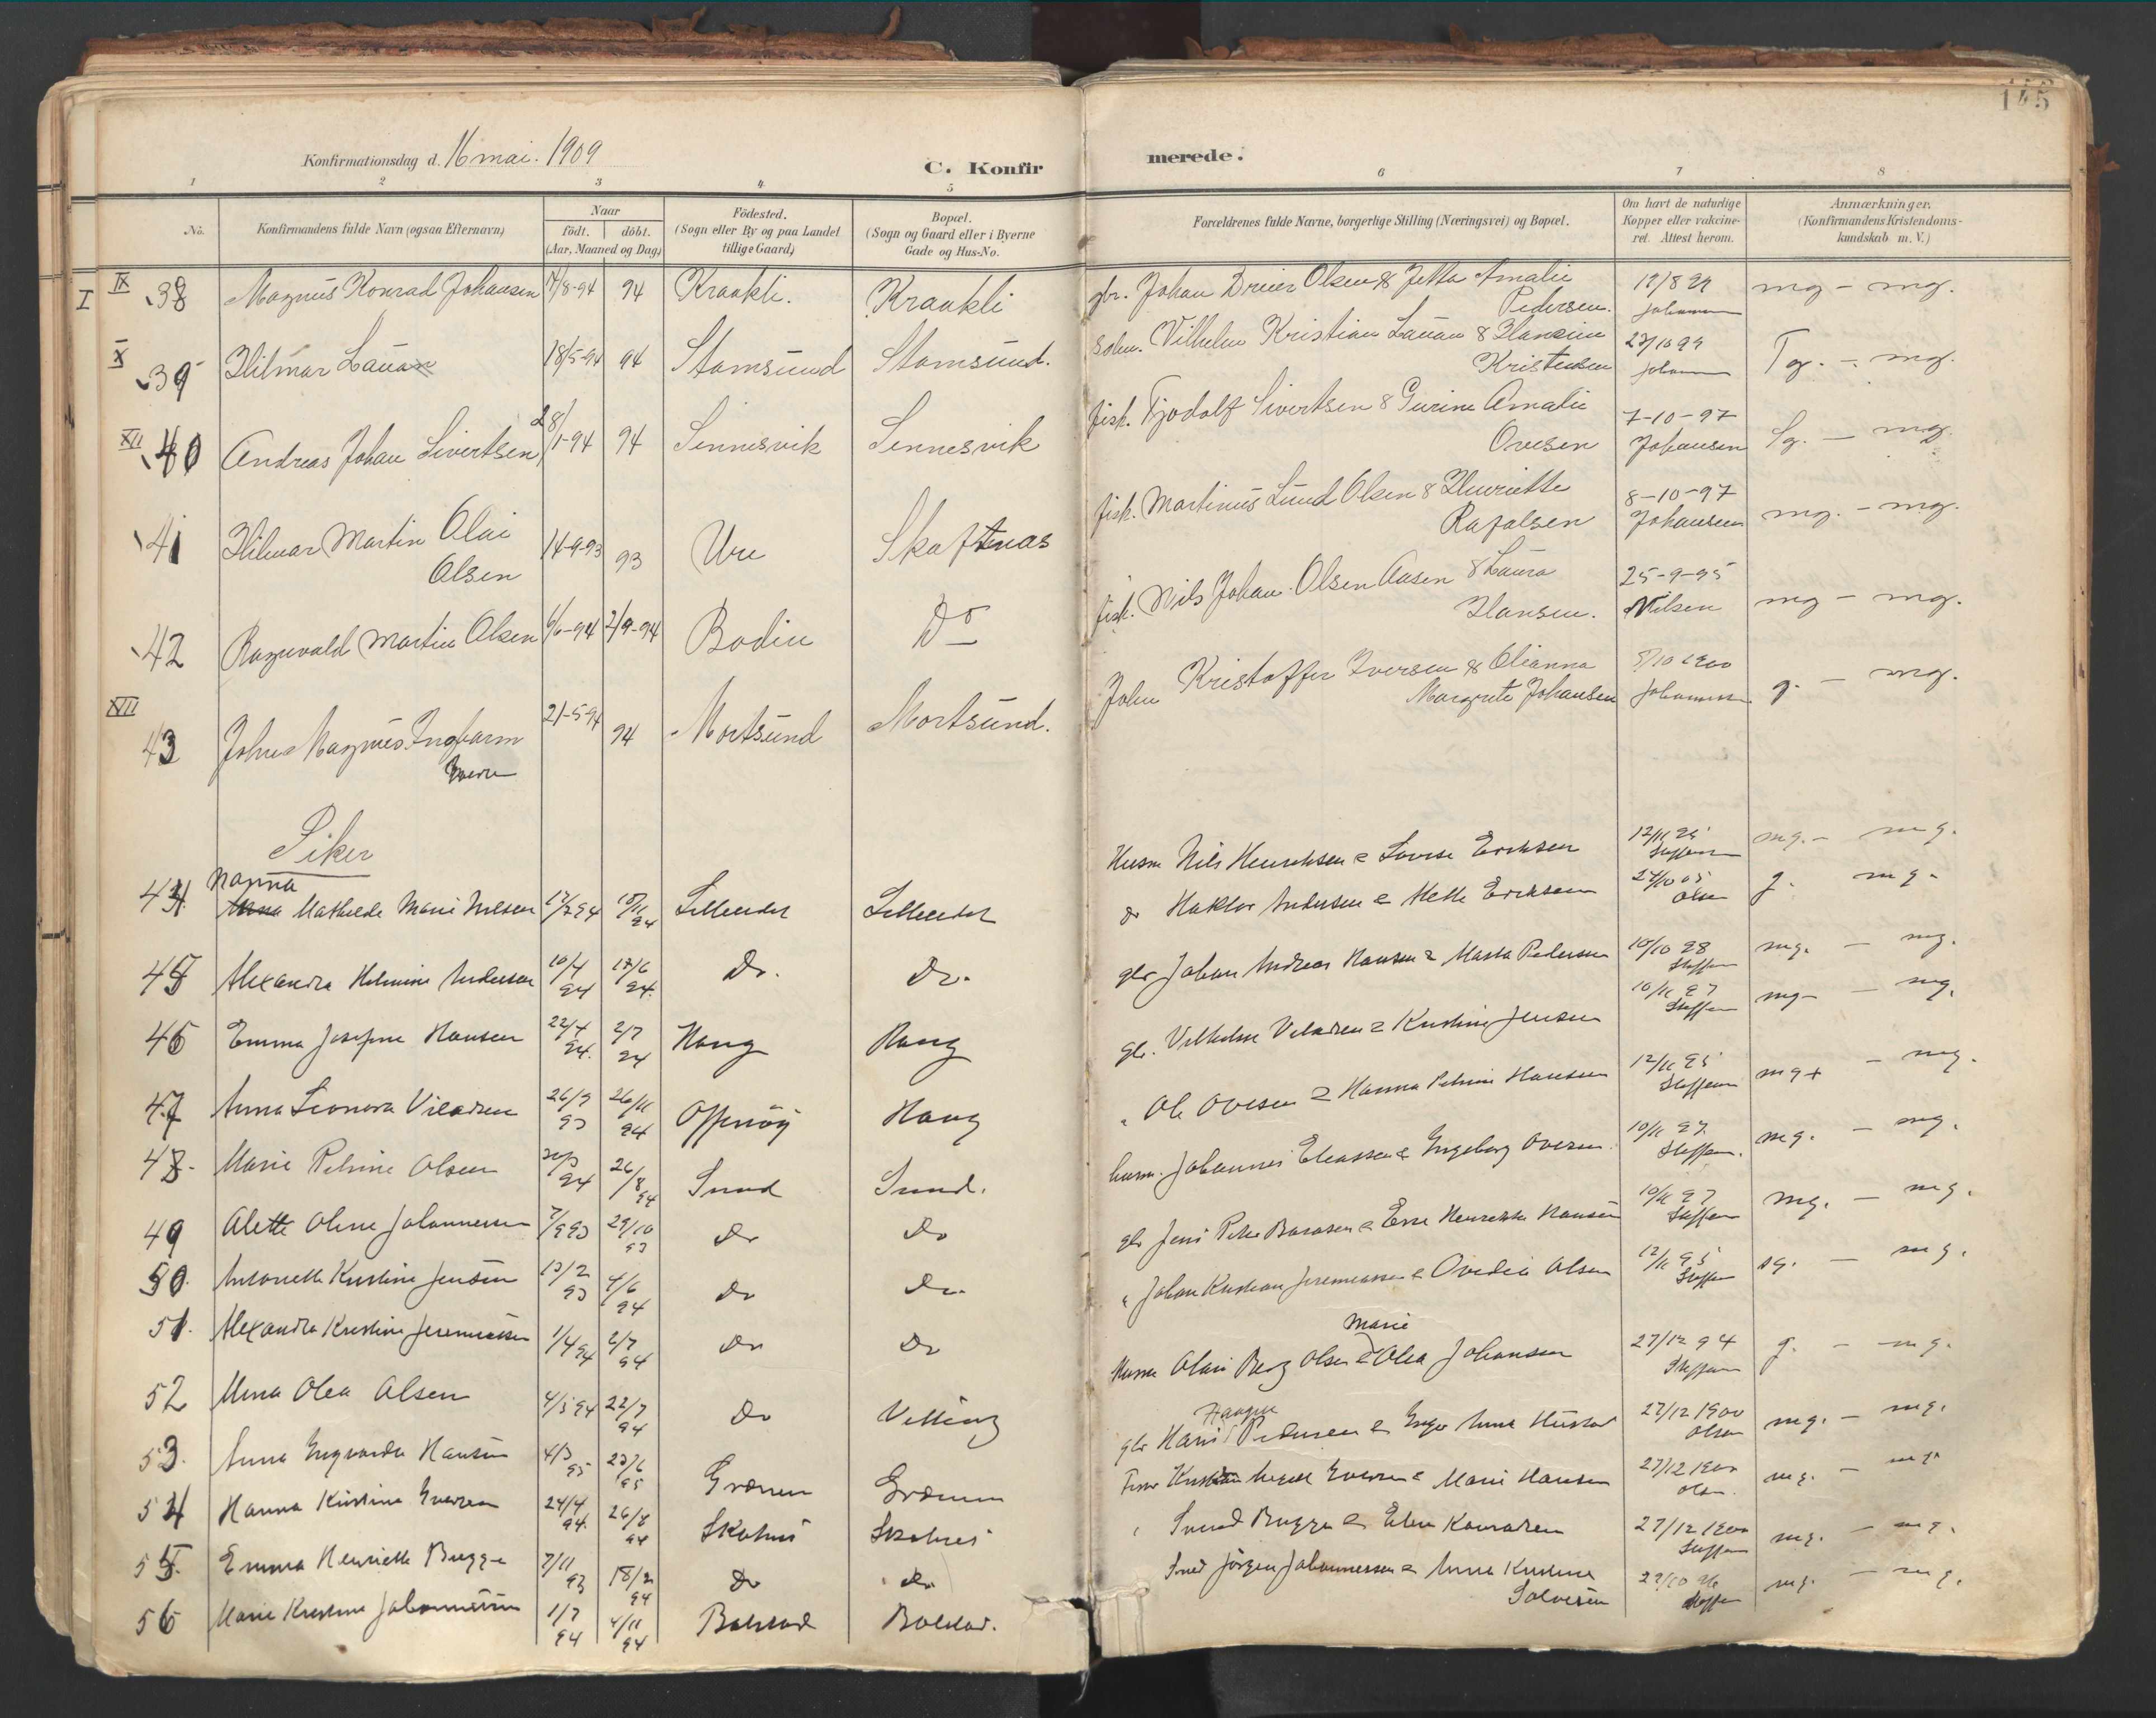 145
Konfirmationsdag d. 16 mai. 1909
C. Konfirmerede.
1 2 3 4 5 6 7 8
No.
Konfirmandens fulde Navn (ogsaa Efternavn)
Naar
födt. döbt.
(Aar, Maaned og Dag)
Födested.
(Sogn eller By og paa Landet
tillige Gaard)
Bopæl.
(Sogn og Gaard eller i Byerne
Gade og Hus-No.
Forældrenes fulde Navne, borgerlige Stilling (Næringsvei) og Bopæl.
Om havt de naturlige
Kopper eller vakcine-
ret. Attest herom.
Anmærkninger.
(Konfirmandens Kristendoms-
kundskab m. V.)
I IX 38 Magnus Konrad Johansen 17/8-94 94 Kraakli. Kraakli gbr. Johan Dreier Olsen & Jetta Amalie
Pedersen. mg - mg.
X 39 Hilmar Lauan 18/5-94 94 Stamsund Stamsund. Vilhelm Kristian Lauan & Hansine
Kristensen 27/10 99 Tg. - mg.
XII 40 Andreas Johan Sivertsen 28/1-94 94 Sennesvik Sennesvik fisk. Tjodolf Sivertsen & Gurine Amalie
Ovesen 7-10-97 Johansen Sg. - mg.
41 Hilmar Martin Olai
Olsen 14-9-93 93 Ure Skaftnas fisk. Martinus Lund Olsen & Henriette
Rafalsen 8-10-97 Johansen mg. - mg.
42 Ragnvald Martin Olsen 6/6-94 2/9-94 Bodin Do fisk. Nils Johan Olsen Aasen & Laura
Hansen. 25-9-95 Nilsen mg - mg.
XIII 43 Johns Magnus Ingbarm
21-5-94 94 Mortsund Mortsund. John Kristoffer Iversen & Olianna
Margrete Johansen 5/10 1900 g. - mg.
Piker
44. Nanna
Mathilde Marie Nilsen 94 Nils Henriksen & Lovise Eriksen 12/11 95 mg. - mg.
45 Alexandra Helmine Andersen 10/4 94 17/6 94. Do. Do. do Haktor Andersen & Mette Eriksen Olsen g. mg.
46 Emma Josefine Hansen 22/4 94. 2/7 94 Haug Haug gbr Johan Andreas Hansen & Marta Pedersen 10/10 98 Steffen mg. - mg.
47 Anna Leonora Viladsen 26/9 93 26/11 94 Offersöy Haug gbr. Vilhelm Viladsen & Kristine Jensen 10/11 97 Steffen mg - mg.
48. Marie Petrine Olsen 94 26/8 94 Sund Sund. " Ole Ovesen & Hanna Petrine Hansen 12/11 95 Steffen mg+ - mg.
49 Alette Oline Johannesen 7/9 93 29/10 93 Do Do husm. Johannes Eleassen & Ingeborg Ovesen. 10/11 97. Steffen. mg. - mg.
50. Antonette Kristine Jensen 13/2 93 4/6 94 Do Do. gbr Jens Peter & Henrikka Hansen 10/11 97 Steffen mg. - mg.
51. Alexandra Kristine Jeremiassen 1/4 94 2/7 94 Do Do " Johan Kristian Jeremiassen & Ovedia Olsen 12/11 95 Steffen sg. - mg.
52 Anna Olea Olsen 4/5 94 22/7 94 Do Husm Olai Berg Olsen & Marie Olea Johansen 27/12 94 Steffen g. - mg.
53. Anna Ingvarda Hansen 4/3 95 23/6 95 gbr Hans Haagen Pedersen & Inger Anna 27/12 1900 Olsen mg. - mg.
54 Hanna Kristine Iversen 24/4 94. 26/8 94 Kristian Iversen & Marie Hansen 27/12 1900 Olsen. mg. - mg.
55. Emma Henriette Bugge 7/11 93 18/2 94 Do Do Bugge & Konradsen 27/12 1900 Steffen mg. - mg.
56 Marie Kristine Johannesen 1/7 94 4/11 94 Balstad Balstad. Jörgen Johannessen & Anna Kristine
Solvesen Steffen mg. - mg.